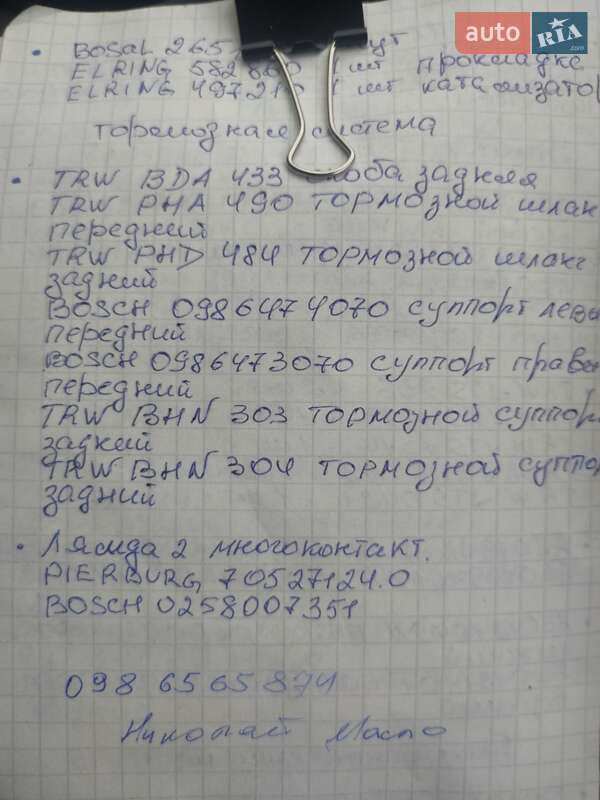 auto RIA .com
BOSAL 265
ELRING 582 860 1 шт прокладке
ELRING 497210 1 шт катализатор
тормозная система
TRW BDA 433 скоба задняя
TRW PHA 490 тормозной шланг
передний
TRW PHD 484 тормозной шланг
задний
BOSCH 0986474070 суппорт левы
передний
BOSCH 0986473070 суппорт правы
передний
TRW BHN 303 тормозной суппор
задний
TRW BHN 304 тормозной суппо
задний
Лямда 2 многоконтакт.
PIERBURG 70527124.0
BOSCH 0258007351
098 6565894
Николай Масло